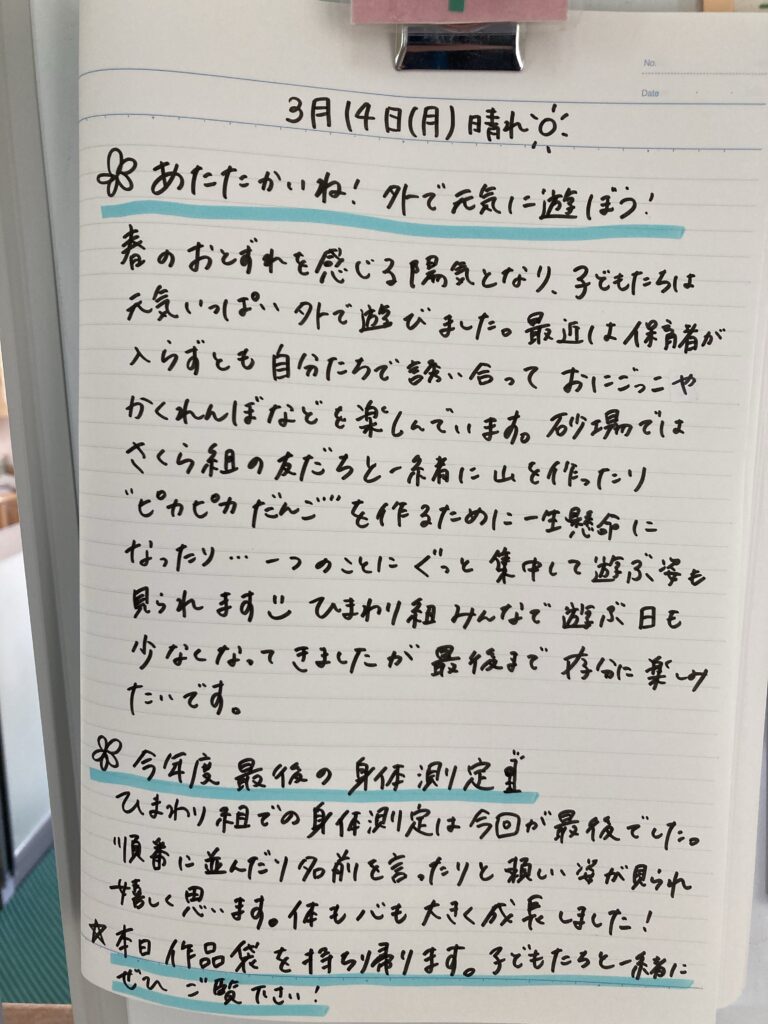 No.
Date
3月14日(月) 晴れ
あたたかいね! 外で元気に遊ぼう!
春のおとずれを感じる陽気となり、子どもたちは
元気いっぱい外で遊びました。最近は保育者が
入らずとも自分たちで誘い合っておにごっこや
かくれんぼなどを楽しんでいます。砂場では
さくら組の友だちと一緒に山を作ったり
"ピカピカだんご"を作るために一生懸命に
なったり…一つのことにぐっと集中して遊ぶ姿も
見られます ひまわり組みんなで遊ぶ日も
少なくなってきましたが最後まで存分に楽しみ
たいです。
今年度最後の身体測定
ひまわり組での身体測定は今回が最後でした。
順番に並んだり名前を言ったりと頼しい姿が見られ
嬉しく思います。体も心も大きく成長しました!
☆本日作品袋を持ち帰ります。子どもたちと一緒に
ぜひご覧下さい!